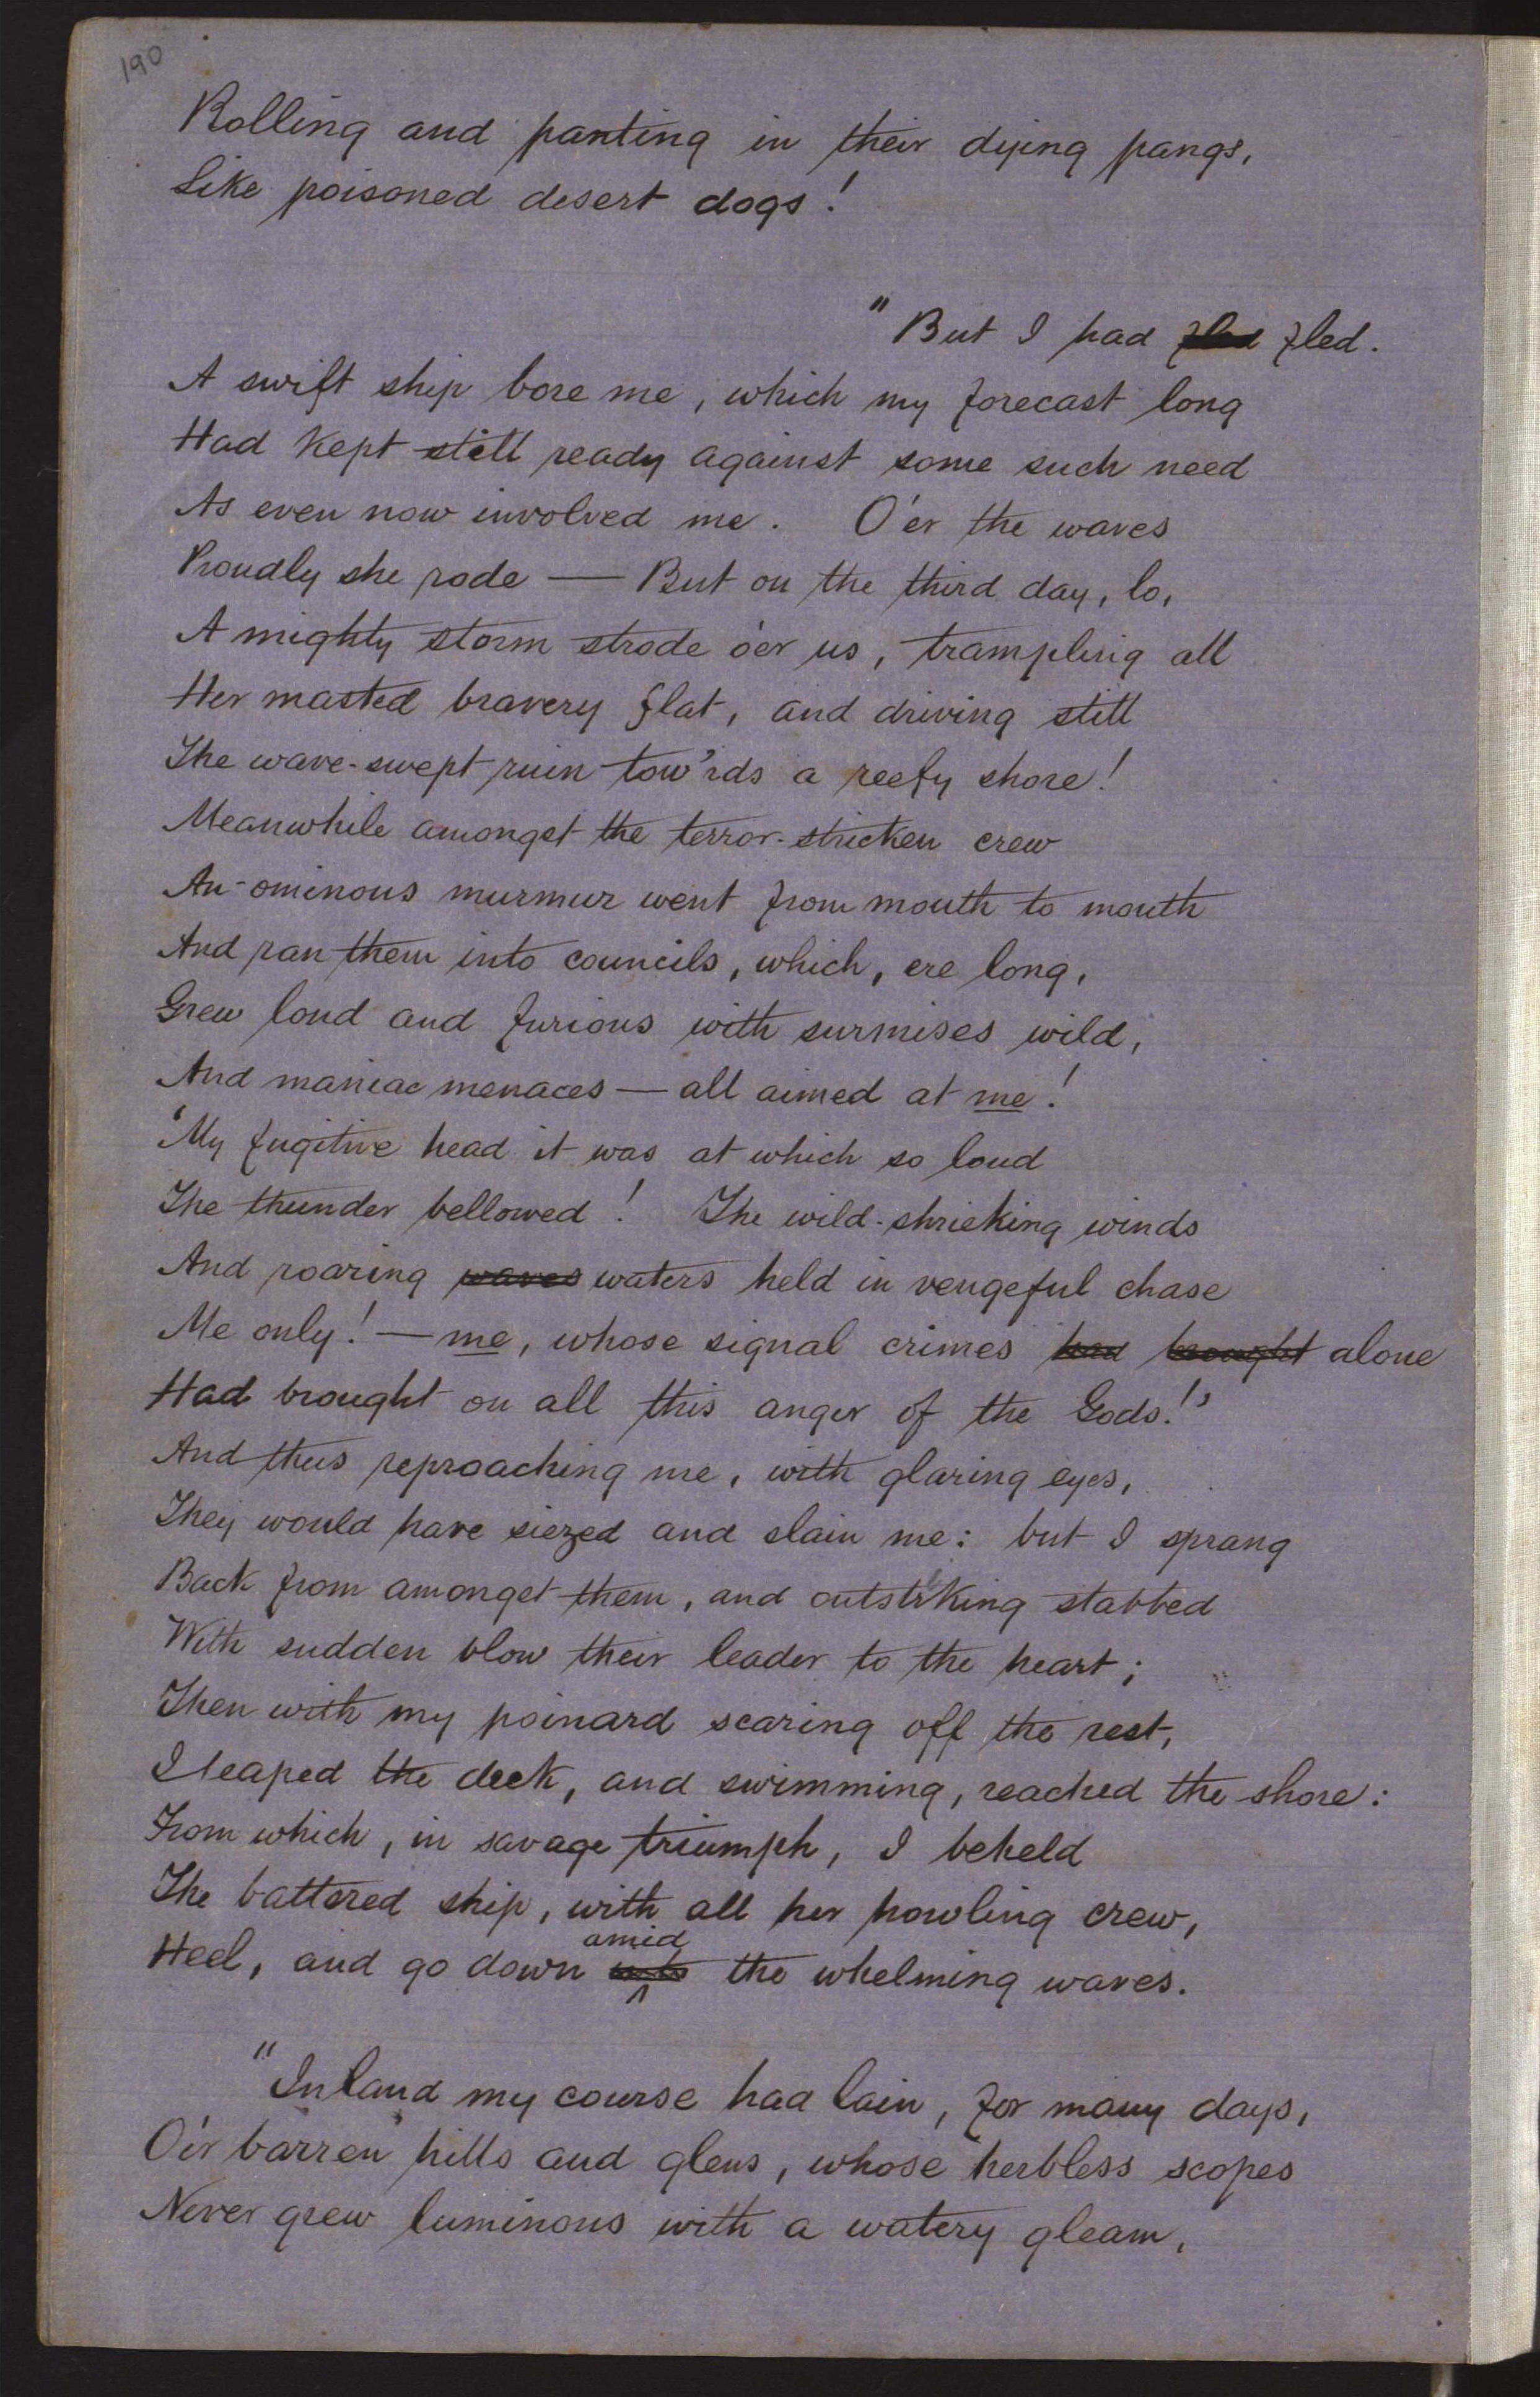 190
Rolling and panting in their dying pangs,
Like poisoned desert dogs!
"But I had fled fled.
A swift ship bore me, which my forecast long
Had kept still ready against some such need
As even now involved me. O'er the waves
Proudly she rode — But on the third day, lo,
A mighty storm strode o'er us, trampling all
Her masted bravery flat, and driving still
The wave-swept ruin tow'rds a reefy shore!
Meanwhile amongst the terror-stricken crew
An ominous murmur went from mouth to mouth
And ran them into councils, which, ere long,
Grew loud and furious with surmises wild,
And maniac menaces — all aimed at me!
'My fugitive head it was at which so loud
The thunder bellowed! The wild-shrieking winds
And roaring waves waters held in vengeful chase
Me only! — me, whose signal crimes had brought alone
Had brought on all this anger of the Gods!'
And thus reproaching me, with glaring eyes,
They would have siezed and slain me: but I sprang
Back from amongst them, and outstriking stabbed
With sudden blow their leader to the heart;
Then with my poinard scaring off the rest,
I leaped the deck, and swimming, reached the shore:
From which, in savage triumph, I beheld
The battered ship, with all her howling crew,
Heel, and go down amid the whelming waves.
"Inland my course had lain, for many days,
O'er barren hills and glens, whose herbless scopes
Never grew luminous with a watery gleam,